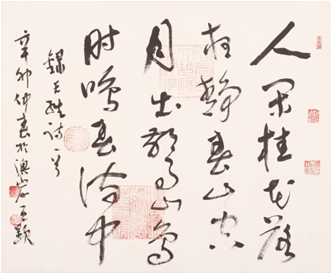 人闲桂花落
夜静春山空
月出惊山鸟
时鸣春涧中
錄王维诗一首
辛卯仲春於澳